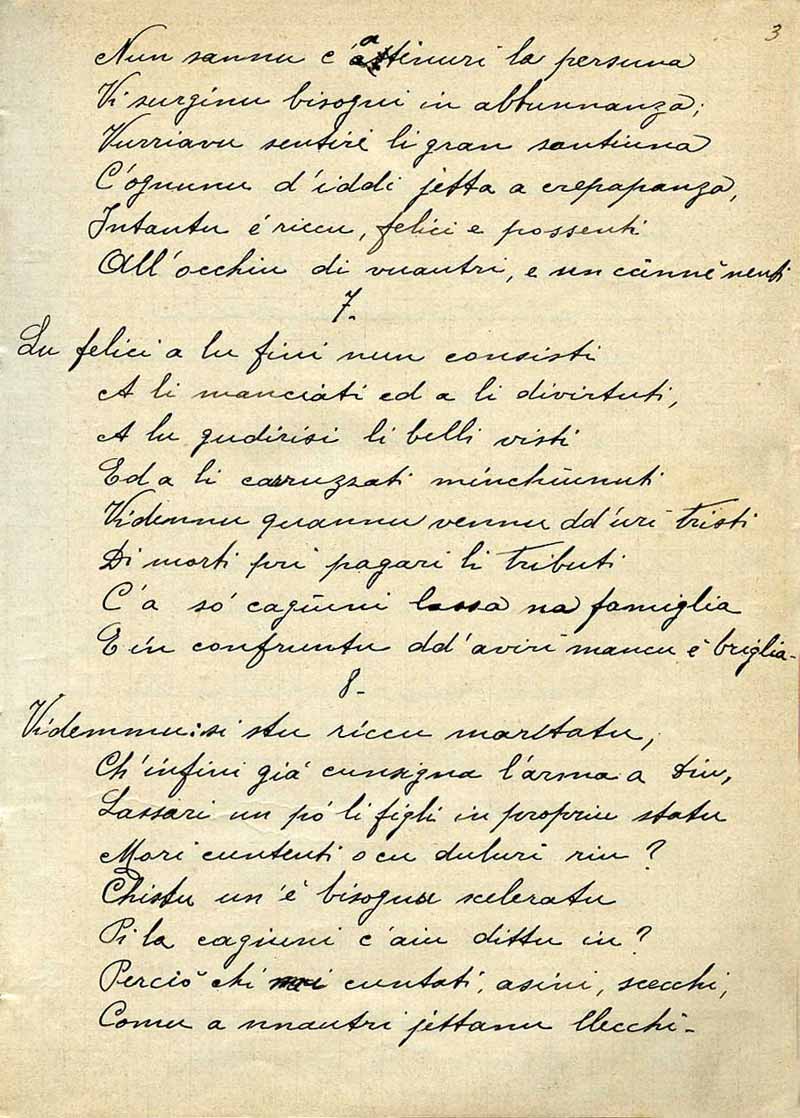 3
Nun sannu c'a attinuri la persuna
Vi surginu bisogni in abbunnanza;
Vurriavu sentiri li gran santiuna
C'ognunu d'iddi jetta a crepapanza,
Intantu é riccu, felici e possenti
All'occhiu di vuautri, e un cânnê nenti
7.
Lu felici a lu fini nun consisti
A li manciati ed a li divirtuti,
A lu gudirisi li belli visti
Ed a li carruzzati minchiunuti
Vidennu quannu vennu dd'uri tristi
Di morti pri pagari li tributi
C'a só cagiuni lassa na famiglia
E in confruntu dd'aviri mancu é briglia-
8-
Videmmu: si stu riccu maritatu,
Ch'infini giá cunsigna l'arma a Diu,
Lassari un pó li figli in propriu statu
Mori cuntenti o cu duluri riu?
Chistu un'é bisognu sceleratu
Pi la cagiuni c'aiu dittu iu?
Perció chi cuntati, asini, scecchi,
Comu a nnautri jettanu llecchi-